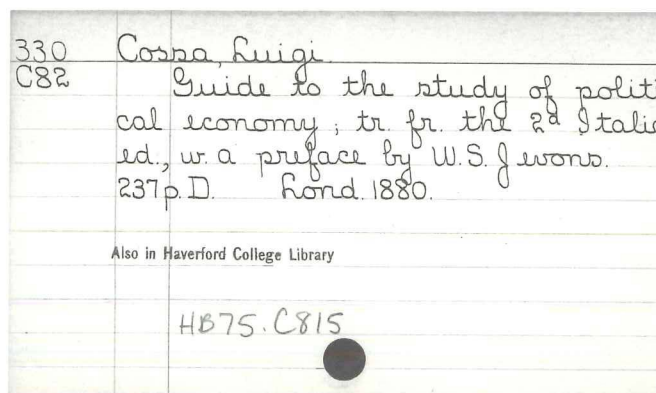 330 Cossa, Luigi.
C82 Guide to the study of politi
cal economy; tr. fr. the 2d Italia
ed., w. a preface by W.S. Jevons.
237p. D. Lond. 1880.
Also in Haverford College Library
HB75.C815